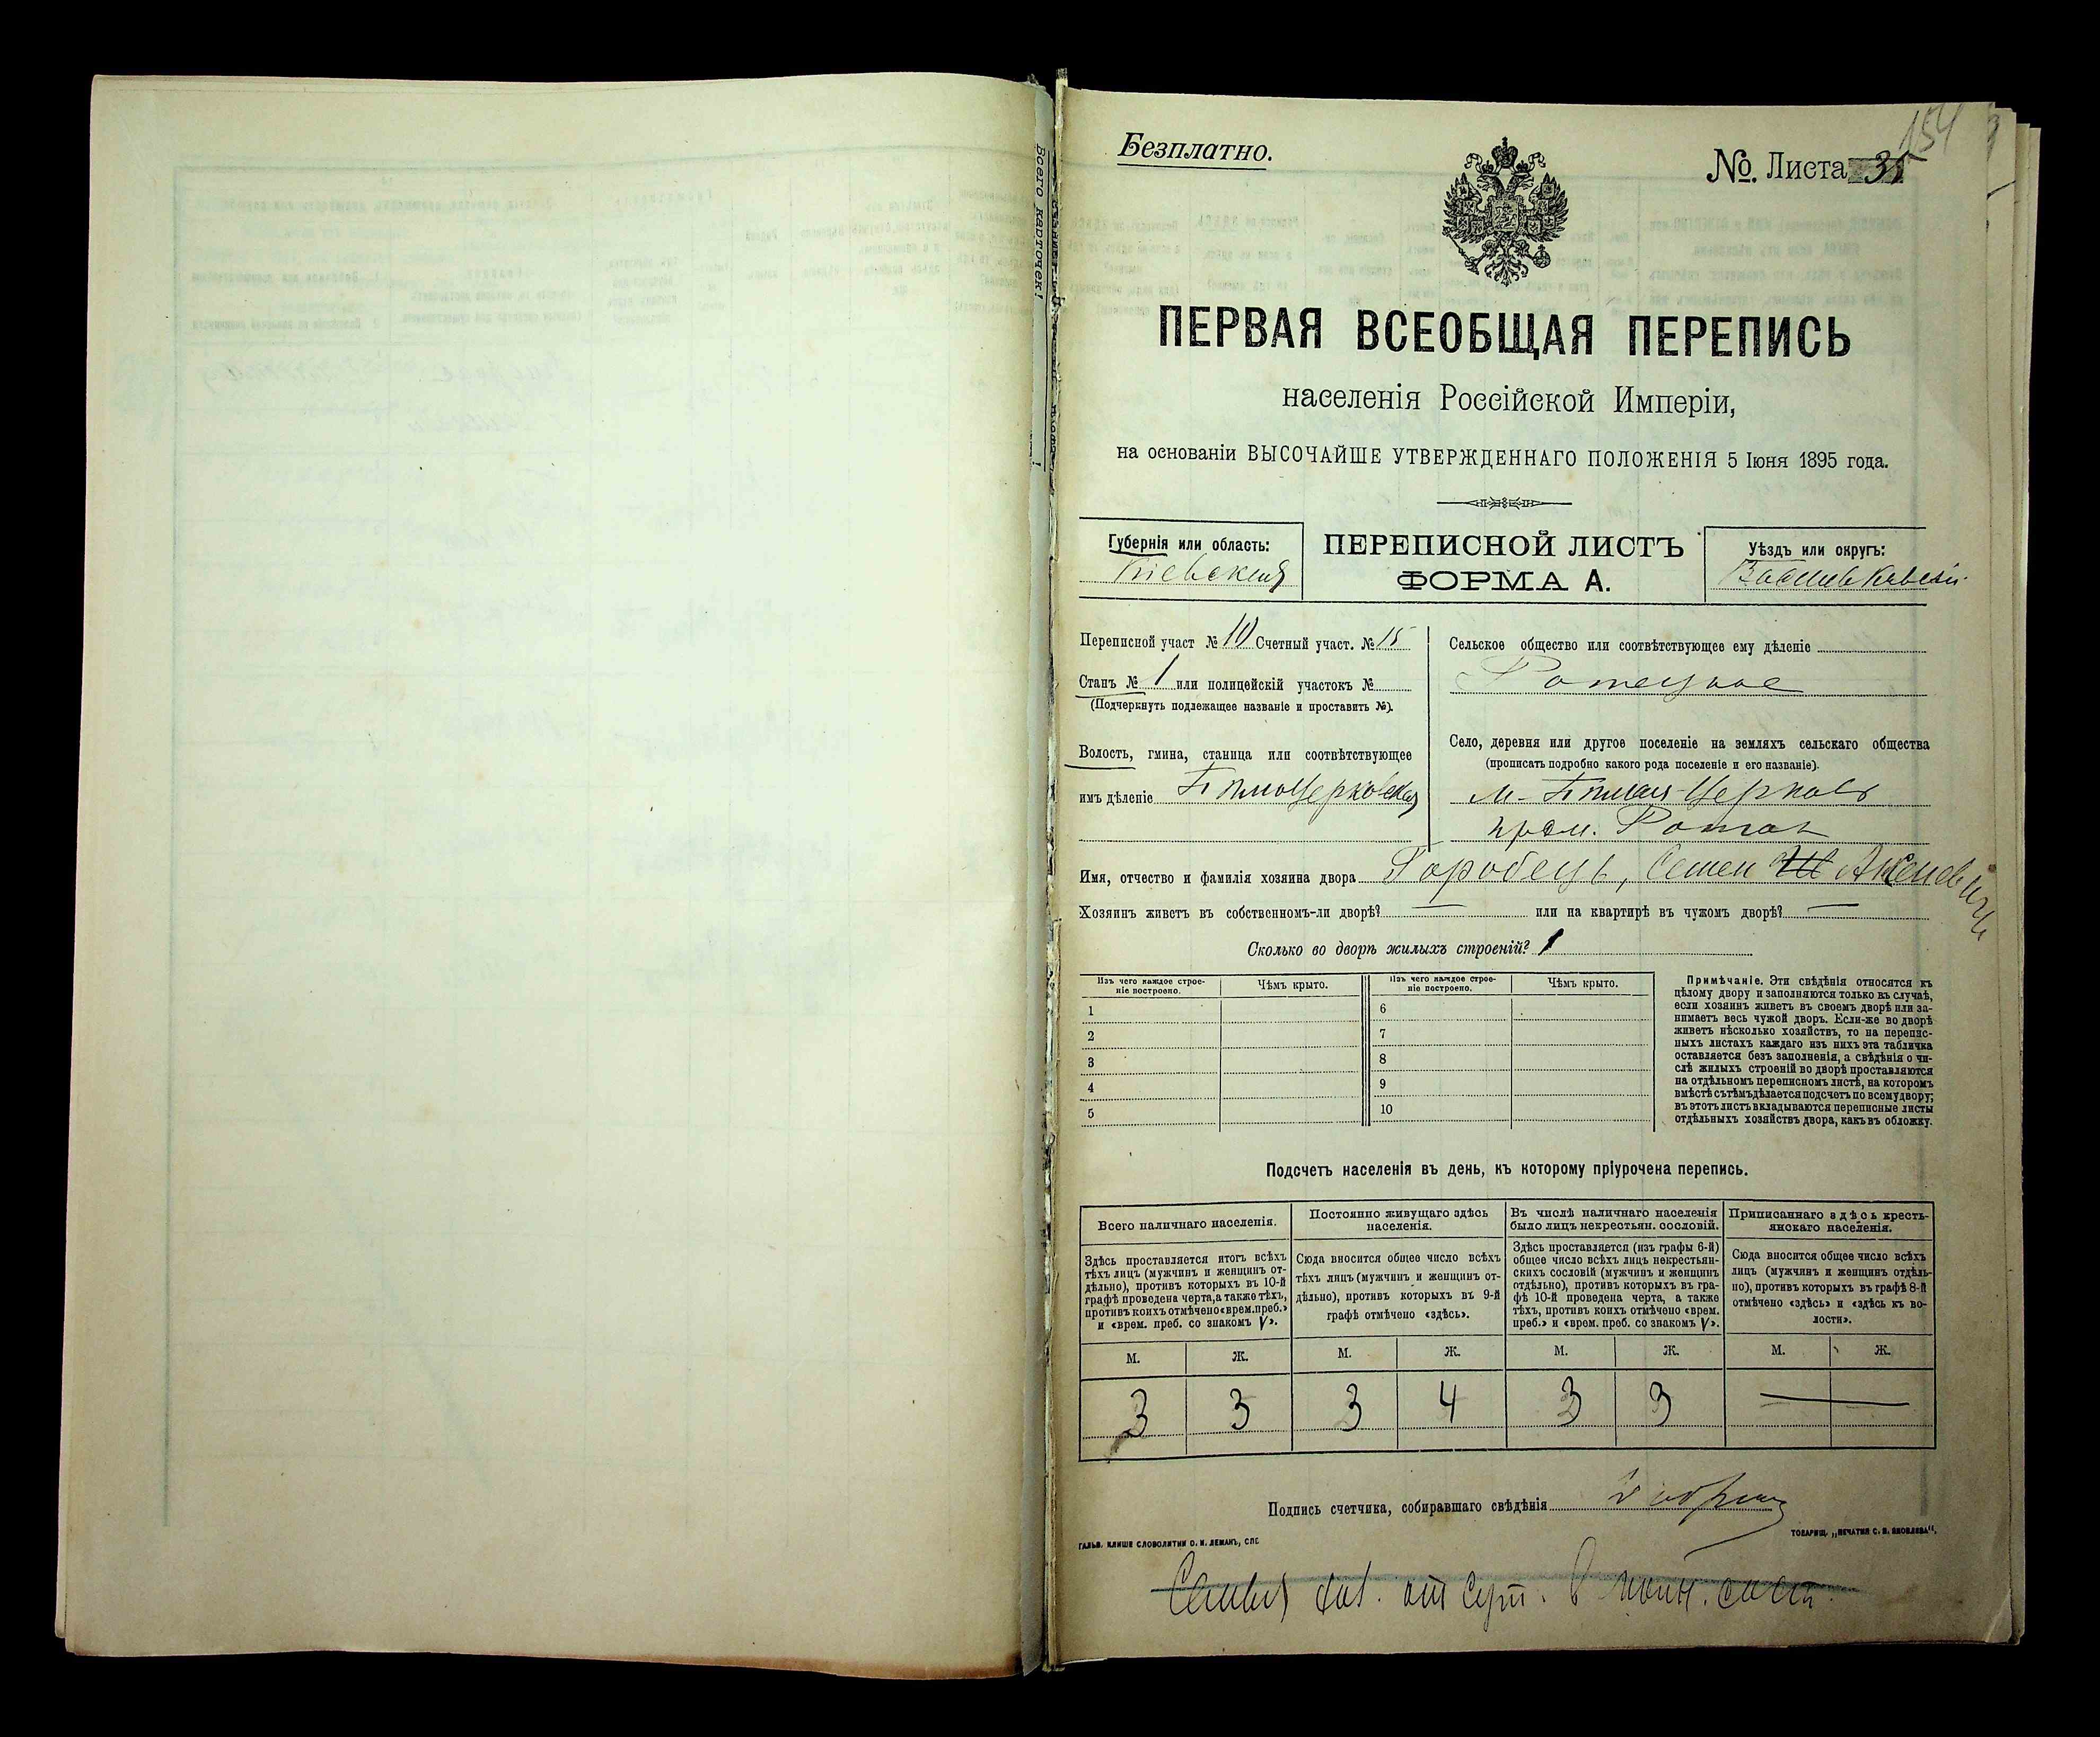 Безплатно.
154
№. Листа 35
ПЕРВАЯ ВСЕОБЩАЯ ПЕРЕПИСЬ
населенія Россійской Имперіи,
на основаніи ВЫСОЧАЙШЕ УТВЕРЖДЕННАГО ПОЛОЖЕНІЯ 5 Іюня 1895 года.
Губернія или область:
Кіевская
ПЕРЕПИСНОЙ ЛИСТЪ
ФОРМА А.
Уѣздъ или округъ:
Васильковскій
Переписной участ № 10 Счетный участ. № 15
Станъ № 1 или полицейскій участокъ №
(Подчеркнуть подлежащее названіе и проставить №).
Волость, гмина, станица или соотвѣтствующее
имъ дѣленіе Бѣлоцерковская
Сельское общество или соотвѣтствующее ему дѣленіе
Ротецкое
Село, деревня или другое поселеніе на земляхъ сельскаго общества
(прописать подробно какого рода поселеніе и его названіе).
м. Бѣлая Церковь
Имя, отчество и фамилія хозяина двора Горобець, Семен
Хозяинъ живетъ въ собственномъ-ли дворѣ? — или на квартирѣ въ чужомъ дворѣ? —
Сколько во дворѣ жилыхъ строеній? 1
Изъ чего каждое строе-
ніе построено.
Чѣмъ крыто.
Изъ чего каждое строе-
ніе построено.
Чѣмъ крыто.
1
2
3
4
5
6
7
8
9
10
Примѣчаніе. Эти свѣдѣнія относятся къ
цѣлому двору и заполняются только въ случаѣ,
если хозяинъ живетъ въ своемъ дворѣ или за-
нимаетъ весь чужой дворъ. Если-же во дворѣ
живетъ нѣсколько хозяйствъ, то на перепис-
ныхъ листахъ каждаго изъ нихъ эта табличка
оставляется безъ заполненія, а свѣдѣнія о чи-
слѣ жилыхъ строеній во дворѣ проставляются
на отдѣльномъ переписномъ листѣ, на которомъ
вмѣстѣ съ тѣмъ дѣлается подсчетъ по всему двору;
въ этотъ листъ вкладываются переписные листы
отдѣльныхъ хозяйствъ двора, какъ въ обложку.
Подсчетъ населенія въ день, къ которому пріурочена перепись.
Всего наличнаго населенія.
Здѣсь проставляется итогъ всѣхъ
тѣхъ лицъ (мужчинъ и женщинъ от-
дѣльно), противъ которыхъ въ 10-й
графѣ проведена черта, а также тѣхъ,
противъ коихъ отмѣчено «врем. преб.»
и «врем. преб. со знакомъ V».
Постоянно живущаго здѣсь
населенія.
Сюда вносится общее число всѣхъ
тѣхъ лицъ (мужчинъ и женщинъ от-
дѣльно), противъ которыхъ въ 9-й
графѣ отмѣчено «здѣсь».
Въ числѣ наличнаго населенія
было лицъ некрестьян. сословій.
Здѣсь проставляется (изъ графы 6-й)
общее число всѣхъ лицъ некрестьян-
скихъ сословій (мужчинъ и женщинъ
отдѣльно), противъ которыхъ въ гра-
фѣ 10-й проведена черта, а также
тѣхъ, противъ коихъ отмѣчено «врем.
преб.» и «врем. преб. со знакомъ V».
Приписаннаго здѣсь кресть-
янскаго населенія.
Сюда вносится общее число всѣхъ
лицъ (мужчинъ и женщинъ отдѣль-
но), противъ которыхъ въ графѣ 8-й
отмѣчено «здѣсь» и «здѣсь къ во-
лости».
М. Ж. М. Ж. М. Ж. М. Ж.
3 3 3 4 3 3 —
Подпись счетчика, собиравшаго свѣдѣнія
ГАЛЬВ. КЛИШЕ СЛОВОЛИТНИ О. И. ЛЕМАНЪ, СПБ
ТОВАРИЩ. „ПЕЧАТНЯ С. П. ЯКОВЛЕВА“.
Всего карточекъ!